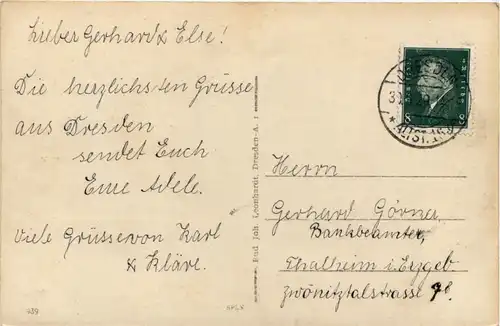 Lieber Gerhard & Else!
Die herzlichsten Grüsse
aus Dresden
sendet Euch
Eure Adele.
Viele Grüsse von Karl
& Kläre.
Emil Joh. Leonhardt, Dresden-A. 1
Herrn
Gerhard Görner,
Bankbeamter,
Thalheim i. Erzgeb.
Zwönitztalstrasse 78.
DRESDEN
ALTST. 
8
439